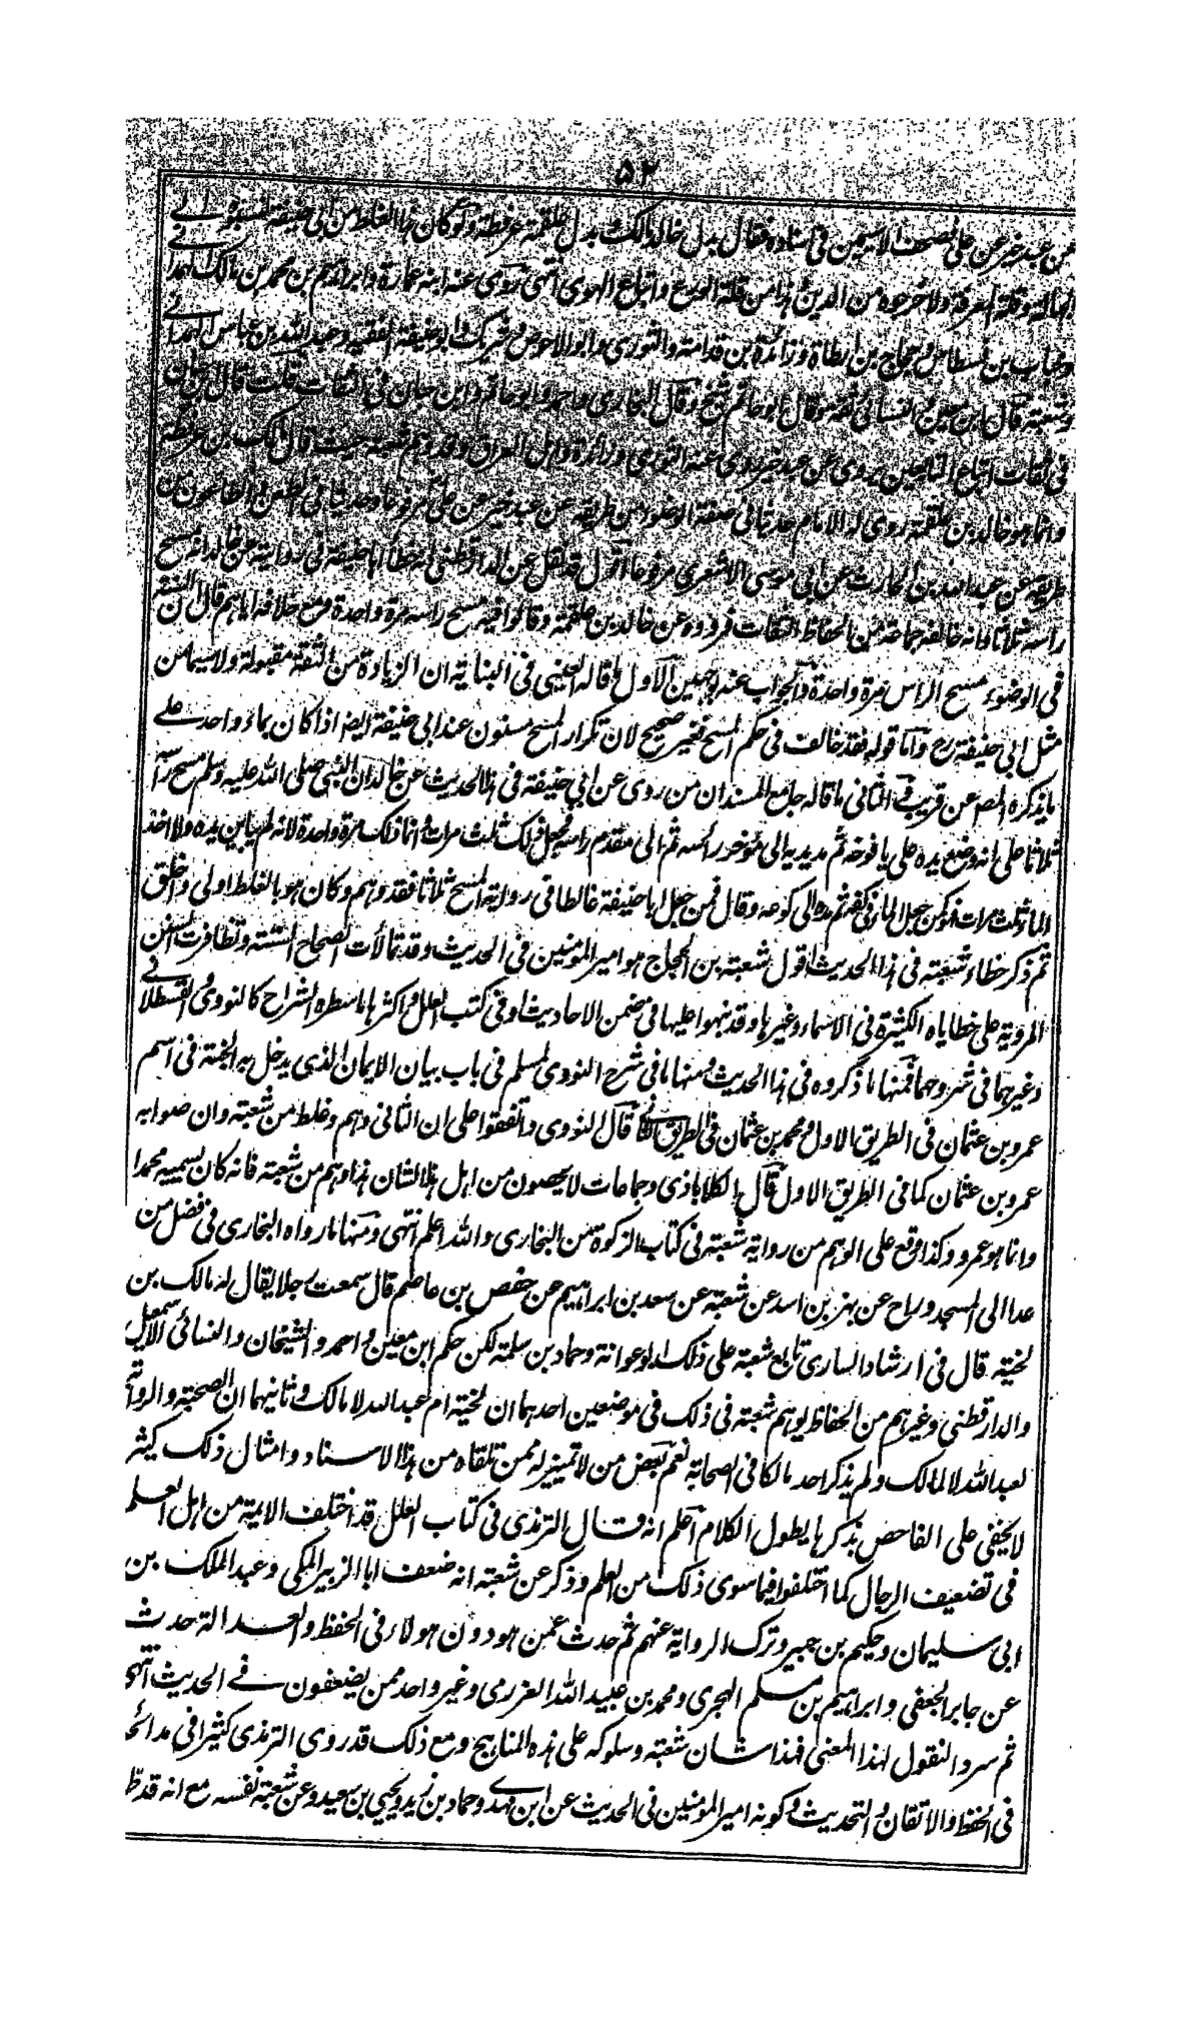 ٥٢
عن عبد خير عن علي فصحف الاسمين في اسناده فقال بدل خالد مالك وبدل علقمة عرفطة ولو كان هذا الغلط من ابي حنيفة لنسبوه الى
الجهالة وقلة المعرفة ولاخرجوه من الدين وهذا من قلة الورع واتباع الهوى انتهى روى عنه ابنه عمارة وابراهيم بن محمد بن مالك الهمداني
وجناب بن نسطاس وحجاج بن ارطاة وزائدة بن قدامة والثوري وابو الاحوص وشريك وابو حنيفة الفقيه وعبد الله بن عباس الهمداني
وشعبة قال ابن معين والنسائي ثقة وقال ابو حاتم شيخ وقال البخاري واحمد وابو حاتم وابن حبان في الثقات قلت قال ابن حبان
في ثقات اتباع التابعين يروى عن عبد خير روى عنه الثوري وزائدة واهل العراق وقد وهم شعبة حيث قال مالك بن عرفطة
وانما هو خالد بن علقمة روى له الامام حديثا في صفة الوضوء من طريقه عن عبد خير عن علي مرفوعا وحديثا في الطعن والطاعون من
طريقه عن عبد الله بن الحارث عن ابي موسى الاشعري مرفوعا اقول قد نقل عن الدارقطني انه خطأ ابا حنيفة في روايته عن خالد انه مسح
راسه ثلاثا وانه خالفه جماعة من الحفاظ الثقات فرووه عن خالد بن علقمة وقالوا فيه مسح راسه مرة واحدة ومع خلافه اياهم قال ان السنة
في الوضوء مسح الراس مرة واحدة والجواب عنه بوجهين الاول ما قاله العيني في البناية ان الزيادة من الثقة مقبولة ولا سيما من
مثل ابي حنيفة رح واما قوله فقد خالف في حكم المسح فغير صحيح لان تكرار المسح مسنون عند ابي حنيفة ايضا اذا كان بماء واحد على
ما يذكره المص عن قريب والثاني ما قاله جامع المسند ان من روى عن ابي حنيفة في هذا الحديث عن خالد ان النبي صلى الله عليه وسلم مسح راسه
ثلاثا على انه وضع يده على يافوخه ثم مد يديه الى مؤخر راسه ثم الى مقدم راسه فجعل ذلك ثلث مرات وانما ذلك مرة واحدة لانه لم يباين يده ولا اخذ
الماء ثلث مرات فهو كمن جعل الماء في كفه ثم مده الى كوعه وقال فمن جعل ابا حنيفة غالطا في رواية المسح ثلاثا فقد وهم وكان هو بالغلط اولى واخلق
ثم ذكر خطاء شعبة في هذا الحديث اقول شعبة بن الحجاج هو امير المؤمنين في الحديث وقد تمالأت الصحاح الستة وتظافرت السنن
المروية على خطاياه الكثيرة في الاسماء وغيرها وقد نبهوا عليها في ضمن الاحاديث او في كتب العلل واكثرها ما سطره الشراح كالنووي والقسطلاني
وغيرهما في شروحهما فمنها ما ذكروه في هذا الحديث ومنها ما في شرح النووي لمسلم في باب بيان الايمان الذي يدخل به الجنة في اسم
عمرو بن عثمان في الطريق الاول ومحمد بن عثمان في الطريق الثاني قال النووي واتفقوا على ان الثاني وهم وغلط من شعبة وان صوابه
عمرو بن عثمان كما في الطريق الاول قال الكلاباذي وجماعات لا يحصون من اهل هذا الشان هذا وهم من شعبة فانه كان يسميه محمدا
وانما هو عمرو وكذا وقع على الوهم من رواية شعبة في كتاب الزكوة من البخاري والله اعلم انتهى ومنها ما رواه البخاري في فضل من
غدا الى المسجد وراح عن بهز بن اسد عن شعبة عن سعد بن ابراهيم عن حفص بن عاصم قال سمعت رجلا يقال له مالك بن
بحينة قال في ارشاد الساري تابع شعبة على ذلك ابو عوانة وحماد بن سلمة لكن حكم ابن معين واحمد والشيخان والنسائي والاسمعيلي
والدارقطني وغيرهم من الحفاظ بوهم شعبة في ذلك في موضعين احدهما ان بحينة ام عبد الله لا مالك وثانيهما ان الصحبة والرواية
لعبد الله لا لمالك ولم يذكر احد مالكا في الصحابة نعم بعض من لا تمييز له ممن تلقاه من هذا الاسناد وامثال ذلك كثير
لا يخفى على الفاحص بذكرها يطول الكلام اعلم انه قال الترمذي في كتاب العلل قد اختلف الايمة من اهل العلم
في تضعيف الرجال كما اختلفوا فيما سوى ذلك من العلم وذكر عن شعبة انه ضعف ابا الزبير المكي وعبد الملك بن
ابي سليمان وحكيم بن جبير وترك الرواية عنهم ثم حدث عمن هو دون هولاء في الحفظ والعدالة حدث
عن جابر الجعفي وابراهيم بن مسلم الهجري ومحمد بن عبيد الله العزرمي وغير واحد ممن يضعفون في الحديث انتهى
ثم سرد النقول لهذا المعنى فهذا شان شعبة وسلوكه على هذه المناهج ومع ذلك قد روى الترمذي كثيرا في مدائحه
في الحفظ والاتقان والتحديث وكونه امير المؤمنين في الحديث عن ابن مهدي وحماد بن زيد ويحيى بن سعيد وعن شعبة نفسه مع انه قد